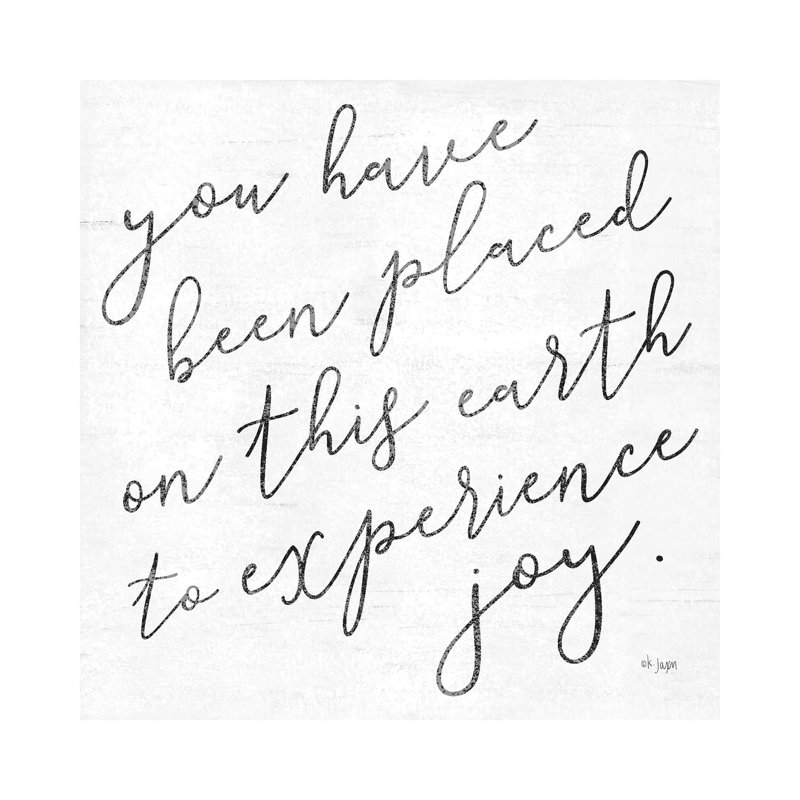 you have
been placed
on this earth
to experience
joy.
©k. jaxn